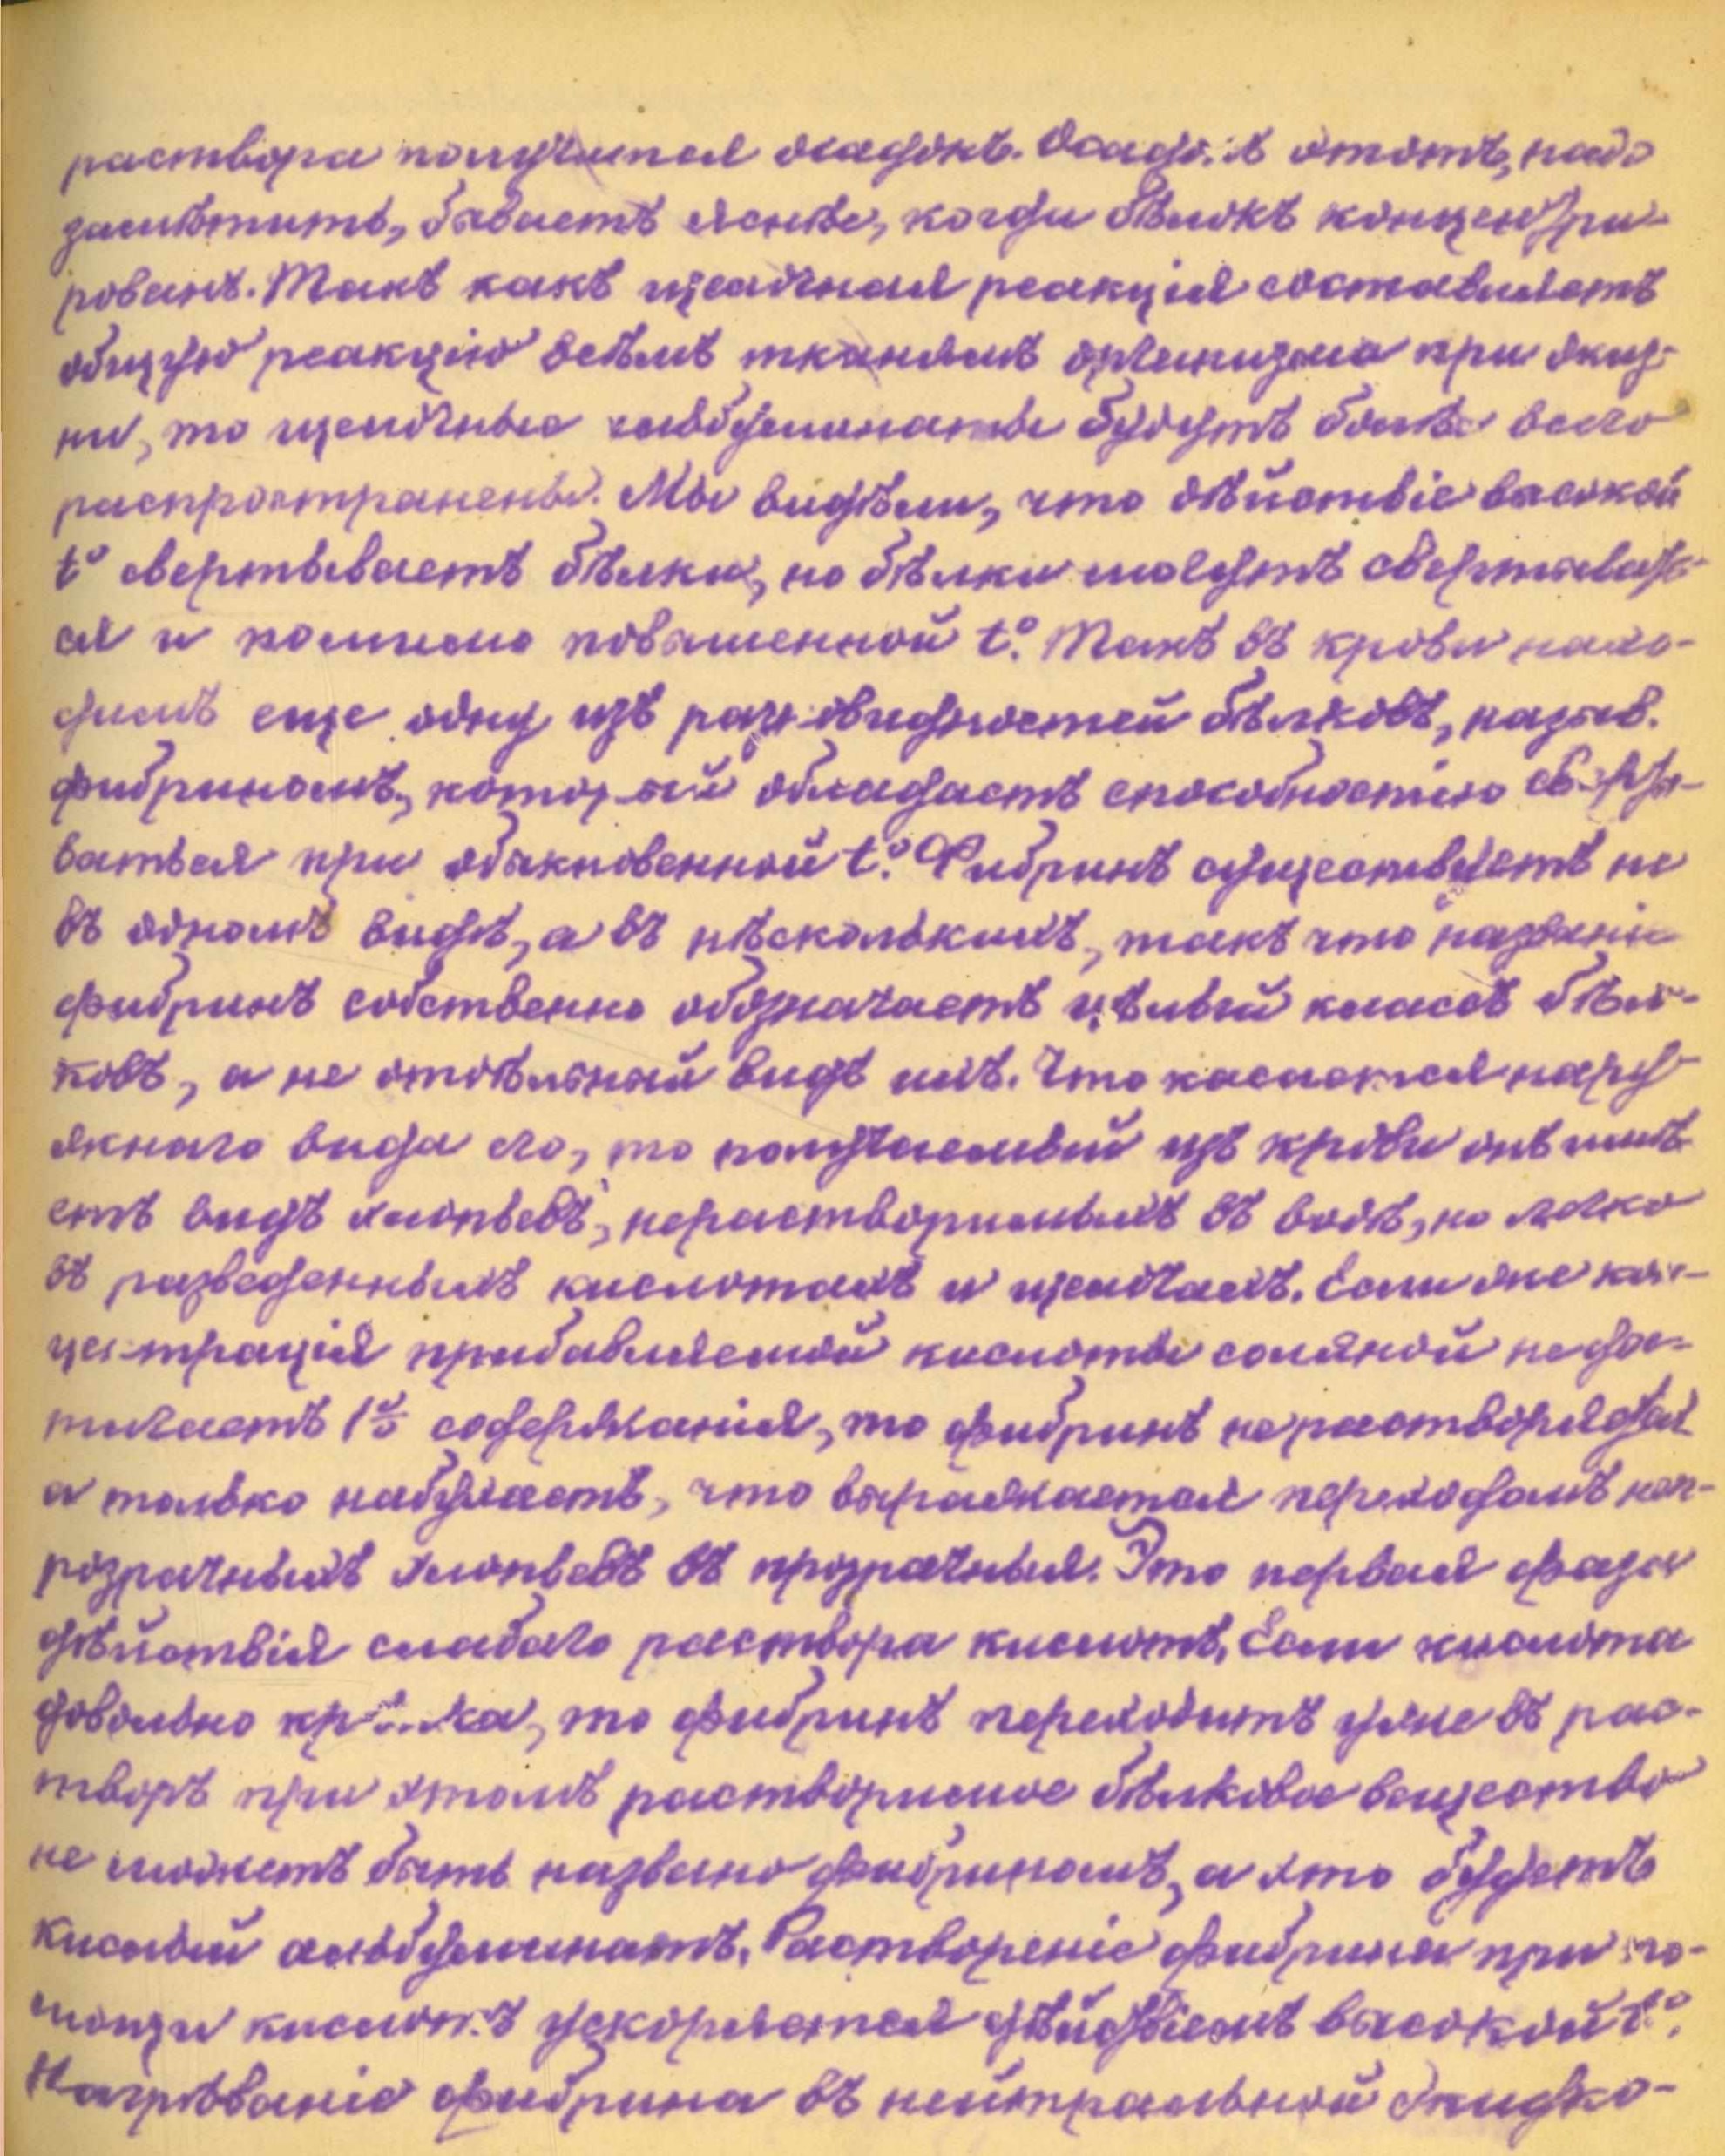 раствора получится осадокъ. Осадокъ этотъ, надо
замѣтить, бываетъ яснѣе, когда бѣлокъ концентри-
рованъ. Такъ какъ щелочная реакція составляетъ
общую реакцію всѣмъ тканямъ организма при жиз-
ни, то щелочные альбуминаты будутъ болѣе всего
распространены. Мы видѣли, что дѣйствіе высокой
t° свертываетъ бѣлки, но бѣлки могутъ свертывать-
ся и помимо повышенной t°. Такъ въ крови нахо-
димъ еще одну изъ разновидностей бѣлковъ, назыв.
фибриномъ, который обладаетъ способностію сверты-
ваться при обыкновенной t°. Фибринъ существуетъ не
въ одномъ видѣ, а въ нѣсколькихъ, такъ что названіе
фибринъ собственно обозначаетъ цѣлый классъ бѣл-
ковъ, а не отдѣльный видъ ихъ. Что касается нару-
жнаго вида его, то получаемый изъ крови онъ имѣ-
етъ видъ хлопьевъ, нерастворимыхъ въ водѣ, но легко
въ разведенныхъ кислотахъ и щелочахъ. Если же кон-
центрація прибавляемой кислоты соляной не до-
тигаетъ 1% содержанія, то фибринъ не растворяется
а только набухаетъ, что выражается переходомъ неп-
розрачныхъ хлопьевъ въ прозрачныя. Это первая фаза
дѣйствія слабаго раствора кислотъ. Если кислота
довольно крѣпка, то фибринъ переходитъ уже въ рас-
творъ при этомъ растворимое бѣлковое вещество
не можетъ быть названо фибриномъ, а это будетъ
кислый альбуминатъ. Раствореніе фибрина при по-
мощи кислотъ ускоряется дѣйствіемъ высокой t°.
Нагрѣваніе фибрина въ нейтральной жидко-